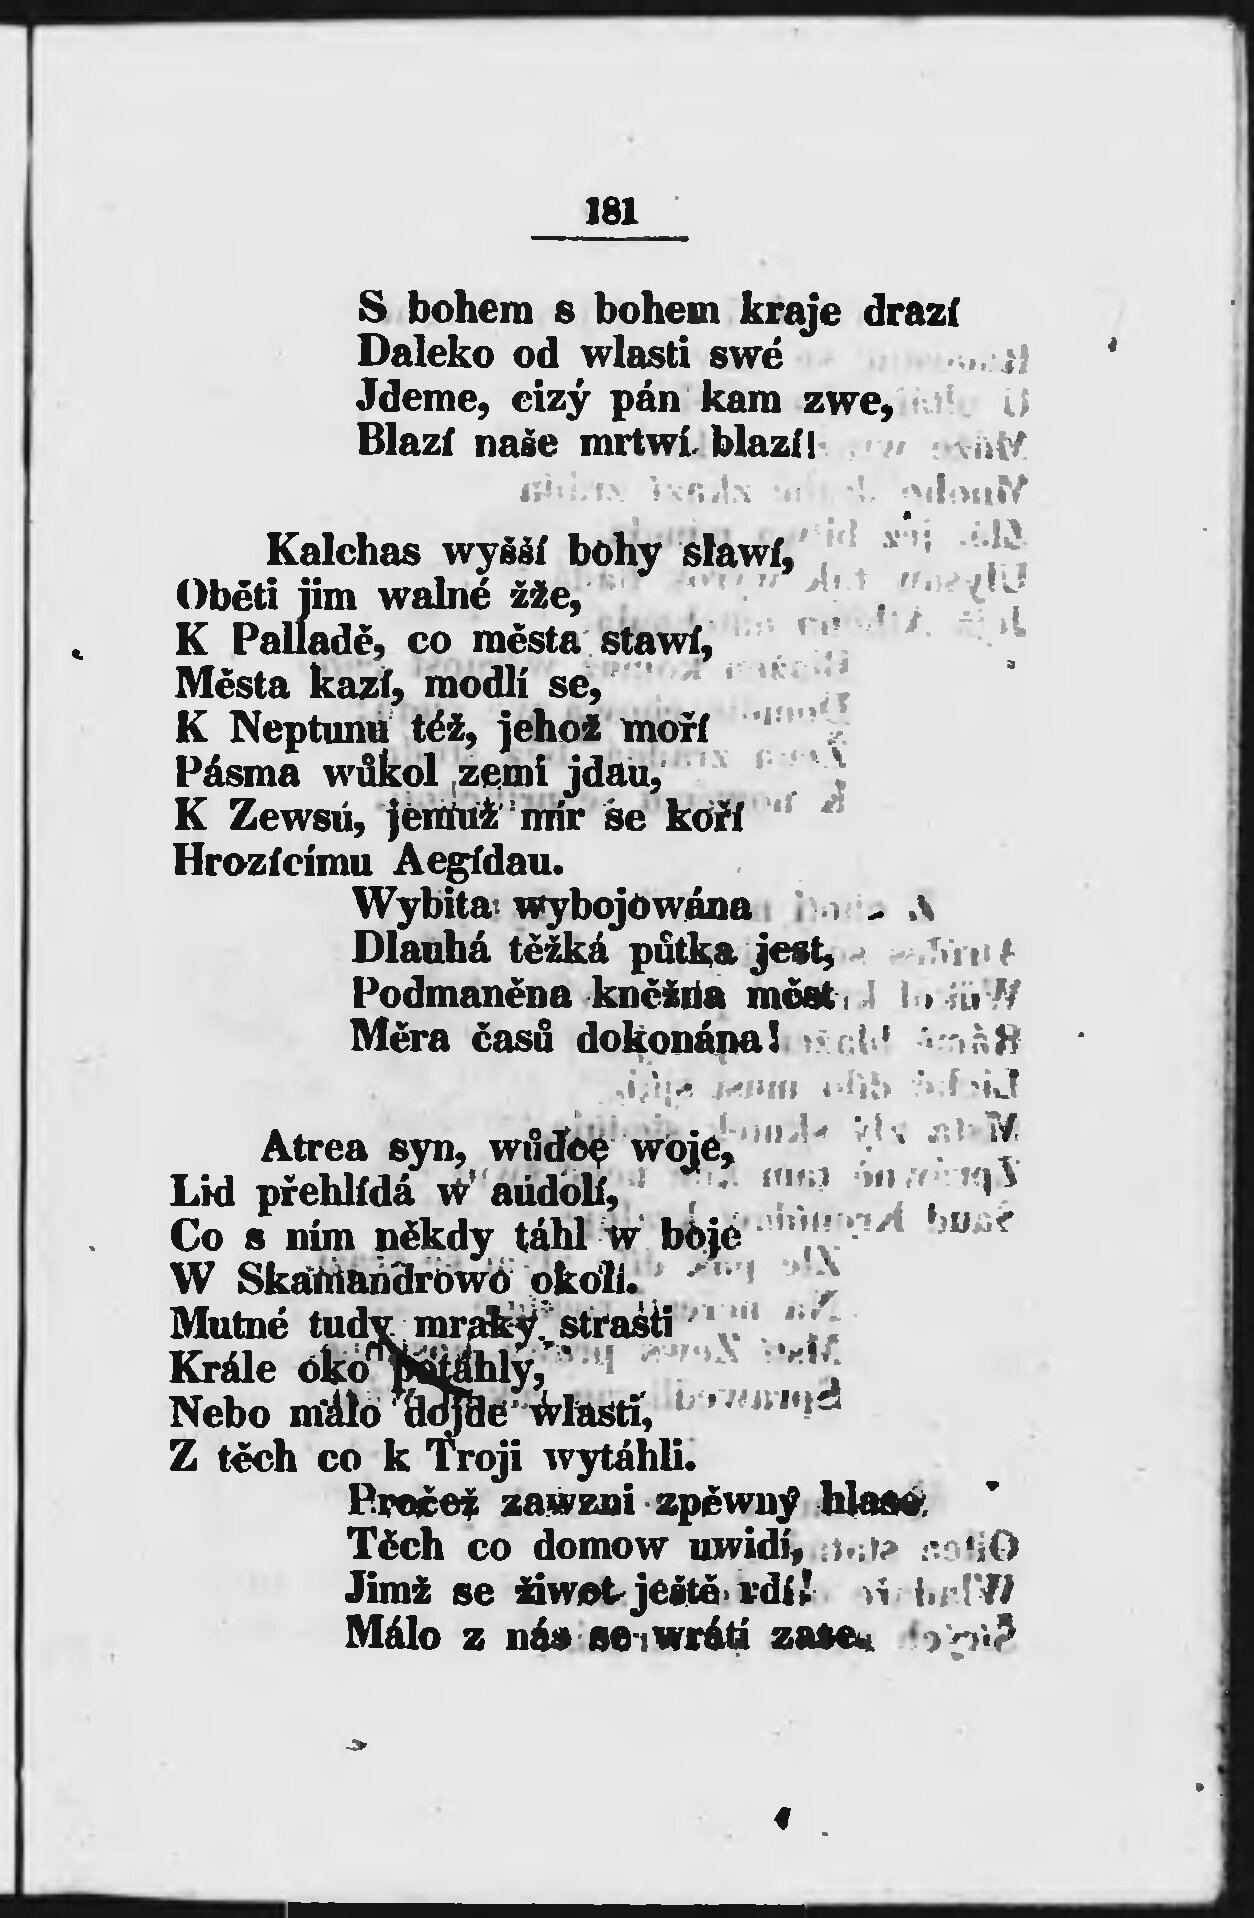 181
S bohem s bohem kraje drazí
Daleko od wlasti swé
Jdeme, cizý pán kam zwe,
Blazí naše mrtwí blazí!
Kalchas wyšší bohy slawí,
Oběti jim walné žže,
K Palladě, co města stawí,
Města kazí, modlí se,
K Neptunu též, jehož moří
Pásma wůkol zemi jdau,
K Zewsu, jemuž mír se koří
Hrozícímu Aegídau.
Wybita wybojowána
Dlauhá těžká půtka jest,
Podmaněna kněžna měst
Měra časů dokonána!
Atrea syn, wůdce woje,
Lid přehlídá w audolí,
Co s ním někdy táhl w boje
W Skamandrowo okolí.
Mutné tudy mraky strasti
Krále oko potáhly,
Nebo málo dojde wlasti,
Z těch co k Troji wytáhli.
Pročež zawzni zpěwný hlase
Těch co domow uwidí,
Jimž se žiwot ještě rdí!
Málo z nás se wrátí zase.